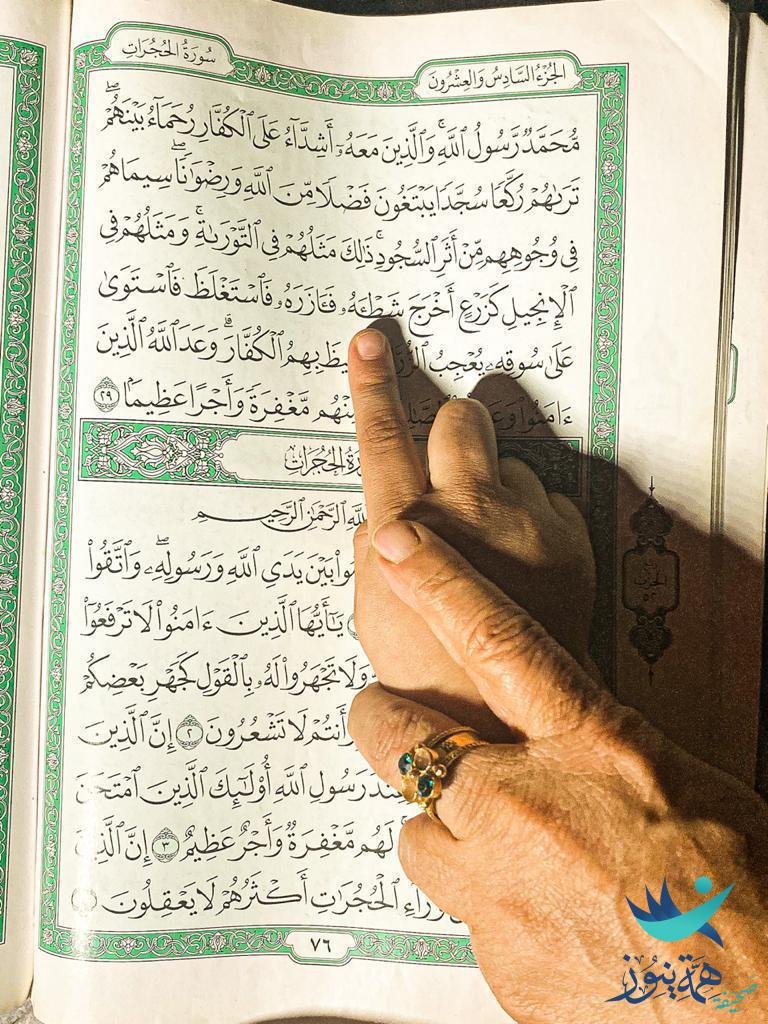 الجُزْءُ السَّادِسُ وَالعِشْرُونَ
سُورَةُ الحُجُرَاتِ
مُّحَمَّدٌ رَّسُولُ ٱللَّهِۚ وَٱلَّذِينَ مَعَهُۥٓ أَشِدَّآءُ عَلَى ٱلْكُفَّارِ رُحَمَآءُ بَيْنَهُمْۖ
تَرَىٰهُمْ رُكَّعًا سُجَّدًا يَبْتَغُونَ فَضْلًا مِّنَ ٱللَّهِ وَرِضْوَٰنًاۖ سِيمَاهُمْ
فِى وُجُوهِهِم مِّنْ أَثَرِ ٱلسُّجُودِۚ ذَٰلِكَ مَثَلُهُمْ فِى ٱلتَّوْرَىٰةِۚ وَمَثَلُهُمْ فِى
ٱلْإِنجِيلِ كَزَرْعٍ أَخْرَجَ شَطْـَٔهُۥ فَـَٔازَرَهُۥ فَٱسْتَغْلَظَ فَٱسْتَوَىٰ
عَلَىٰ سُوقِهِۦ يُعْجِبُ بِهِمُ ٱلْكُفَّارَۗ وَعَدَ ٱللَّهُ ٱلَّذِينَ
ءَامَنُوا۟ مِنْهُم مَّغْفِرَةً وَأَجْرًا عَظِيمًا ٢٩
الحُجُرَاتِ
ٱلرَّحْمَٰنِ ٱلرَّحِيمِ
بَيْنَ يَدَىِ ٱللَّهِ وَرَسُولِهِۦۖ وَٱتَّقُوا۟
يَٰٓأَيُّهَا ٱلَّذِينَ ءَامَنُوا۟ لَا تَرْفَعُوٓا۟
وَلَا تَجْهَرُوا۟ لَهُۥ بِٱلْقَوْلِ كَجَهْرِ بَعْضِكُمْ
وَأَنتُمْ لَا تَشْعُرُونَ ٢ إِنَّ ٱلَّذِينَ
رَسُولِ ٱللَّهِ أُو۟لَٰٓئِكَ ٱلَّذِينَ ٱمْتَحَنَ
لَهُم مَّغْفِرَةٌ وَأَجْرٌ عَظِيمٌ ٣ إِنَّ ٱلَّذِينَ
وَرَآءِ ٱلْحُجُرَٰتِ أَكْثَرُهُمْ لَا يَعْقِلُونَ
٧٦
صحيفة
همة نيوز